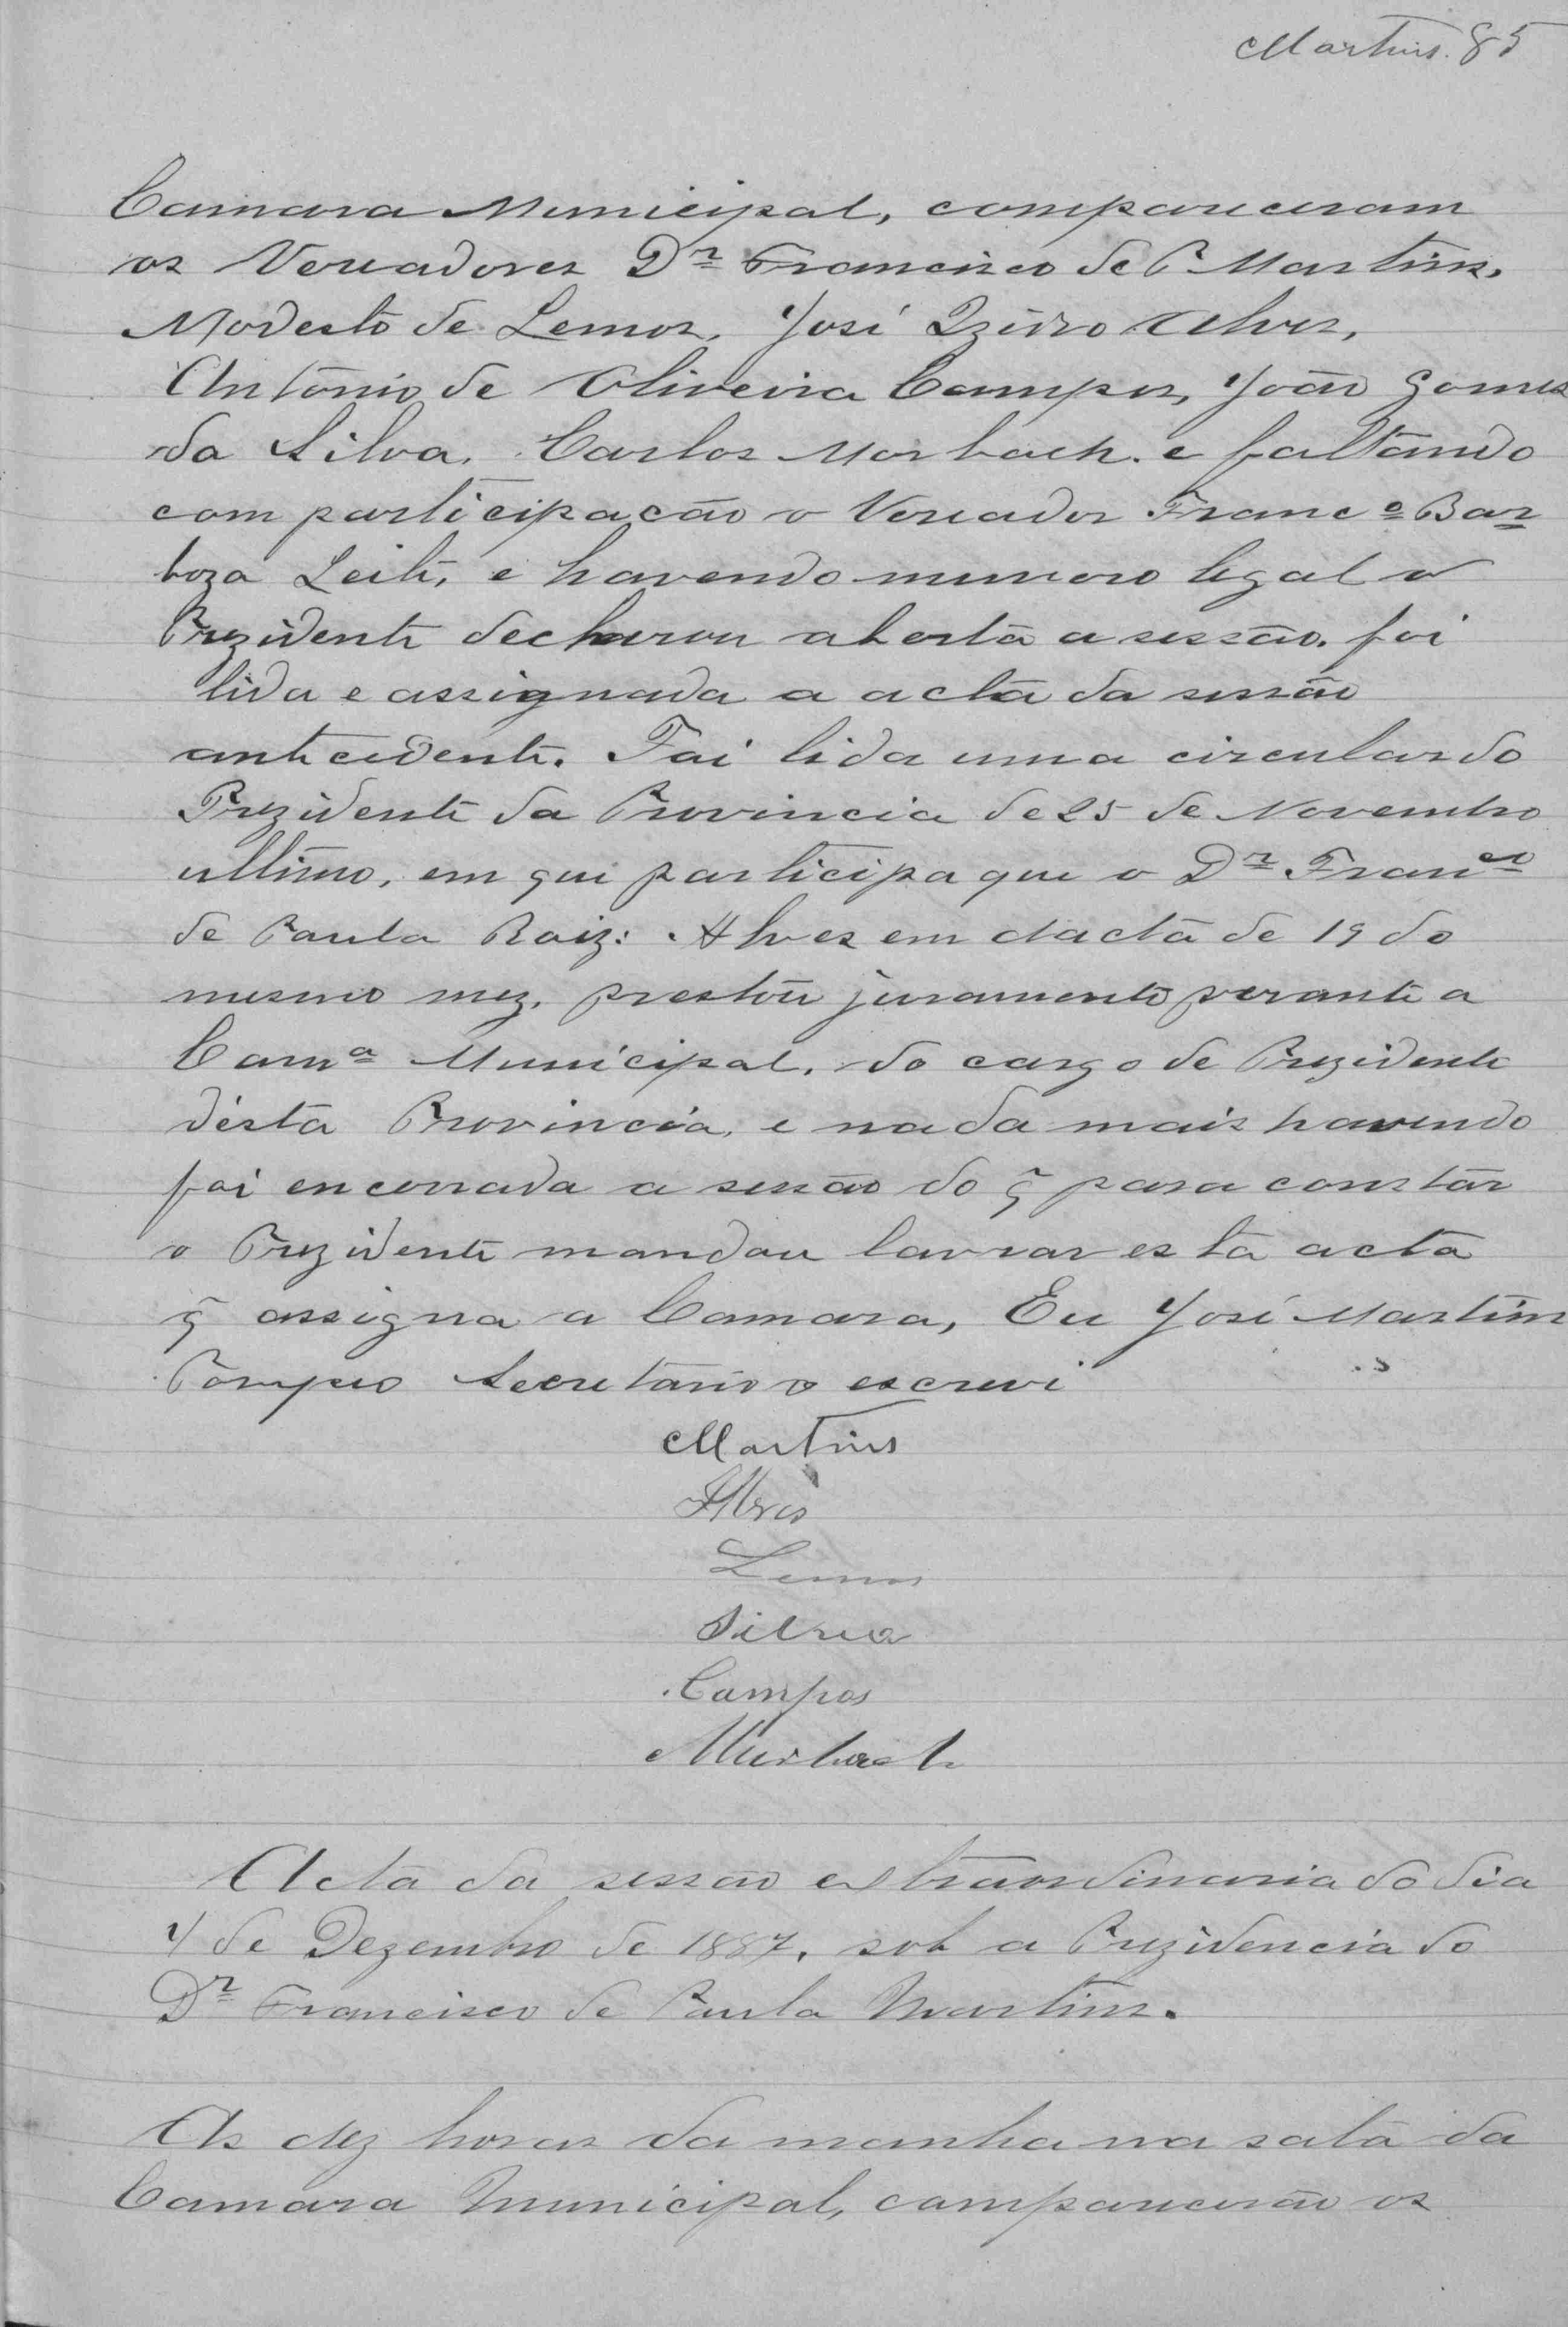 Martins. 85
Camara Municipal, compareceram
os Vereadores Dr Francisco de P Martins,
Modesto de Lemos, José Izidro Alves,
Antonio de Oliveira Campos, João Gomes
da Silva, Carlos Morbach. e faltando
com participacão o Vereador Franco Bar
boza Leite, e havendo numero legal o
Prezidente declarou aberta a sessão. foi
lida e assignada a acta da sessão
antecedente. Foi lida uma circular do
Prezidente da Provincia de 25 de Novembro
ultimo, em que participa que o Dr Franco
de Paula Roiz: Alves em dacta de 19 do
mesmo mez, prestou juramento perante a
Cama Municipal, do cargo de Prezidente
désta Provincia, e nada mais havendo
foi encerrada a sessão do q̃ para constar
o Prezidente mandou lavrar esta acta
q̃ assigna a Camara, Eu José Martins
Pompeo Secretario o escrevi
Martins
Alves
Lemos
Silva
Campos
Murbach
Acta da sessão extraordinaria do dia
de Dezembro de 1887, sob a Prezidencia do
Dr Francisco de Paula Martins.
As dez horas da manha na sala da
Camara Municipal, comparecerão os